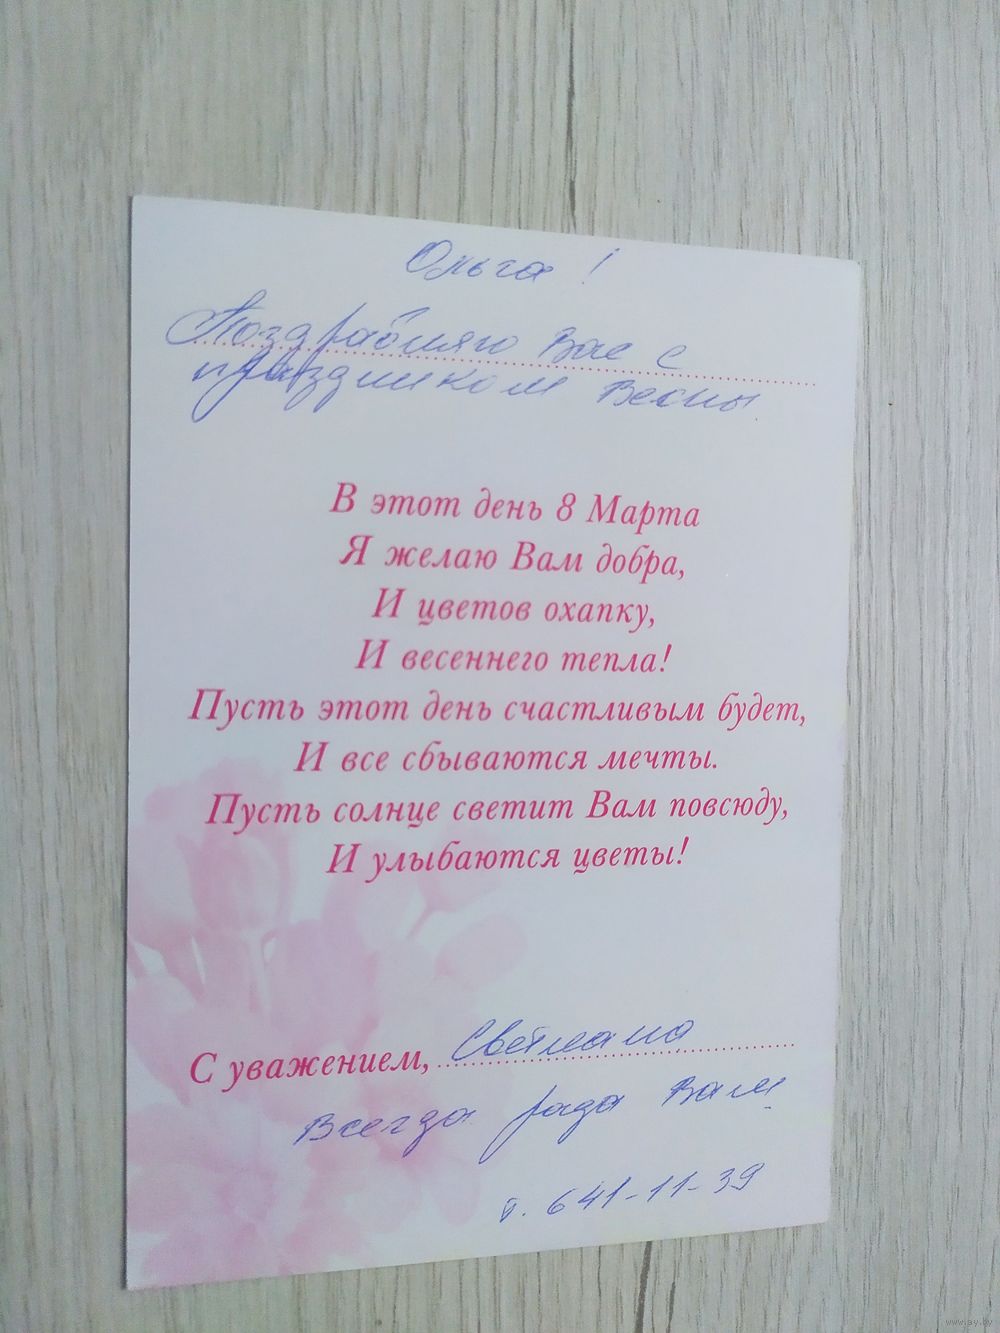 Ольга!
Поздравляю Вас с
праздником Весны
В этот день 8 Марта
Я желаю Вам добра,
И цветов охапку,
И весеннего тепла!
Пусть этот день счастливым будет,
И все сбываются мечты.
Пусть солнце светит Вам повсюду,
И улыбаются цветы!
С уважением, Светлана
Всегда рада Вам
т. 641-11-39
www.ay.by